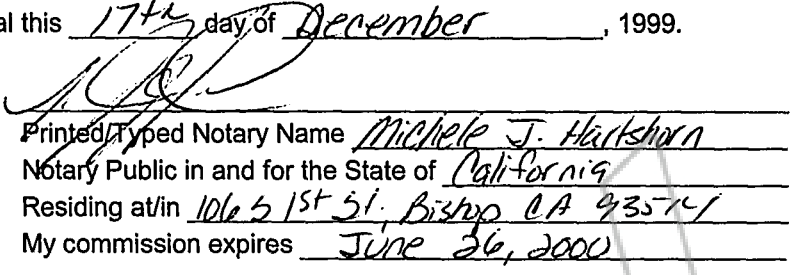 al this 17th day of December, 1999.
Printed/Typed Notary Name Michele J. Hartshorn
Notary Public in and for the State of California
Residing at/in 106 S 1st St. Bishop CA 93514
My commission expires June 26, 2000